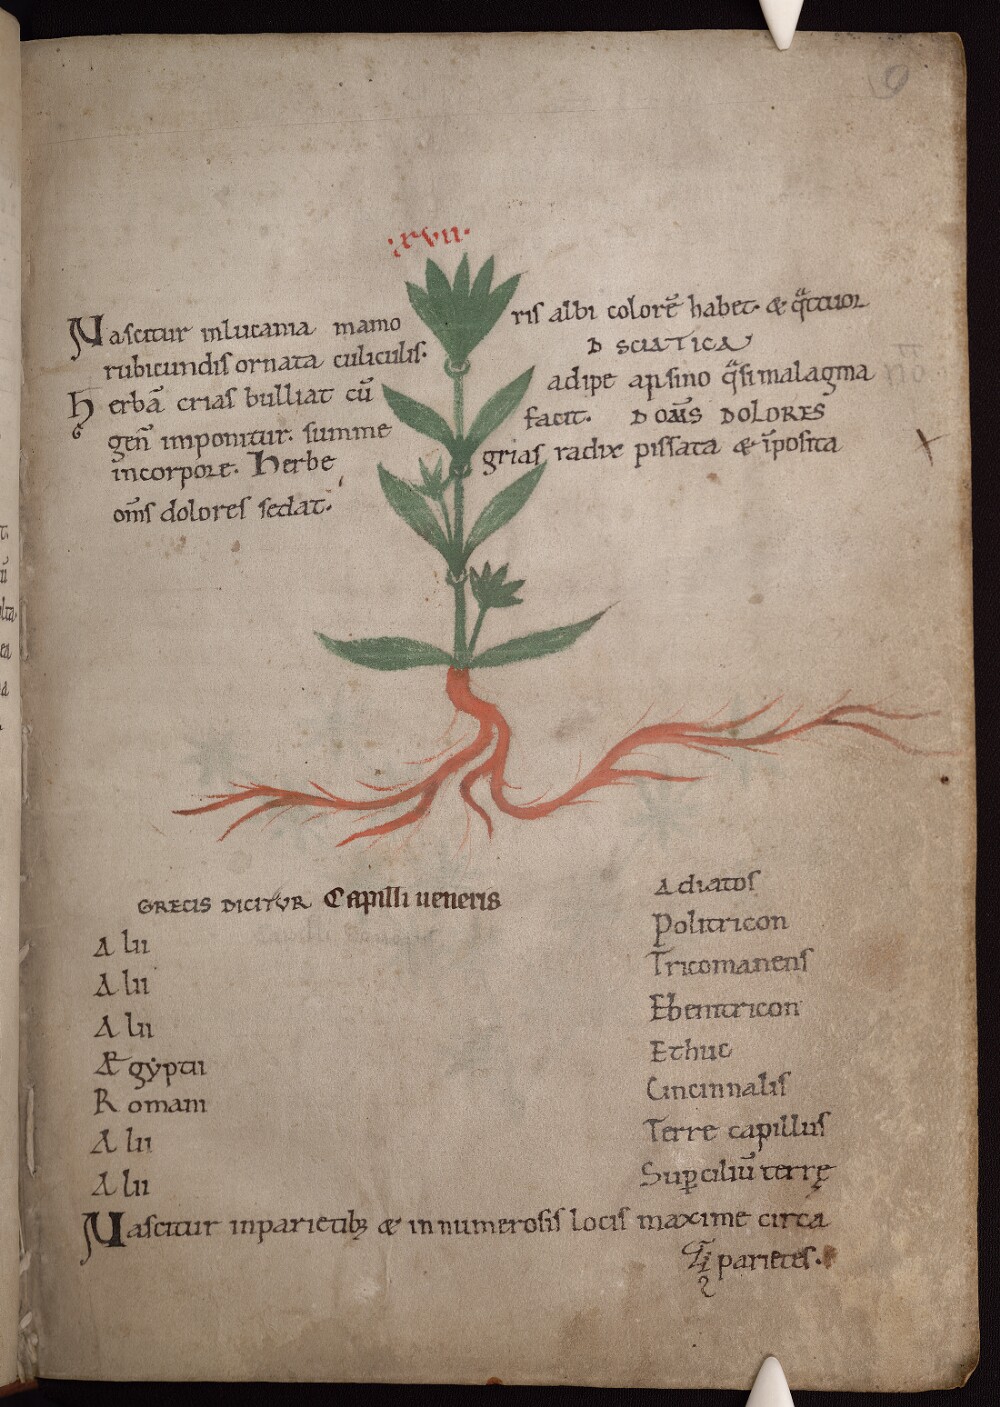 9
·xvii·
Nascitur inlucania mamo ris albi colorē habet· & qͣttuor
rubicundis ornata culiculis· D SCIATICA
Herbā crias bulliat cū adipe apsino qͣsi malagma
gen̄ imponitur· summe facit· D OM̄S DOLORES
incorpore· Herbe grias radix pissata & īposita
om̄s dolores sedat·
GRECIS DICITVR Capilli ueneris Adiatos
Alii Politricon
Alii Tricomanens
Alii Ebentricon
Ægẏptii Ethuc
Romani Cincinnalis
Alii Terre capillus
Alii Suꝑciliū terrę
Nascitur inparietibꝫ & innumerosis locis maxime circa
parietes·